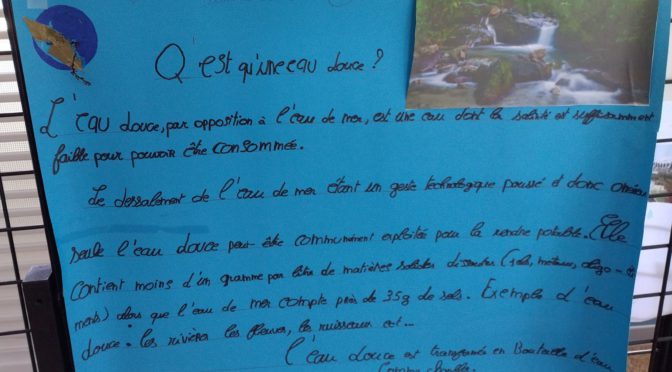 Q'est qu'une eau douce ?
L'eau douce, par opposition à l'eau de mer, est une eau dont la salinité est suffisamment
faible pour pouvoir être consommée.
Le dessalement de l'eau de mer étant un geste technologique poussé et donc
seule l'eau douce peut être communément exploitée pour la rendre potable. Elle
contient moins d'un gramme par litre de matières dissoutes (sels, métaux,
ments) alors que l'eau de mer compte près de 35g de sels. Exemple d'eau
douce : les rivières les fleuves, les ruisseaux ect...
l'eau douce est transformée en Bouteille d'eau